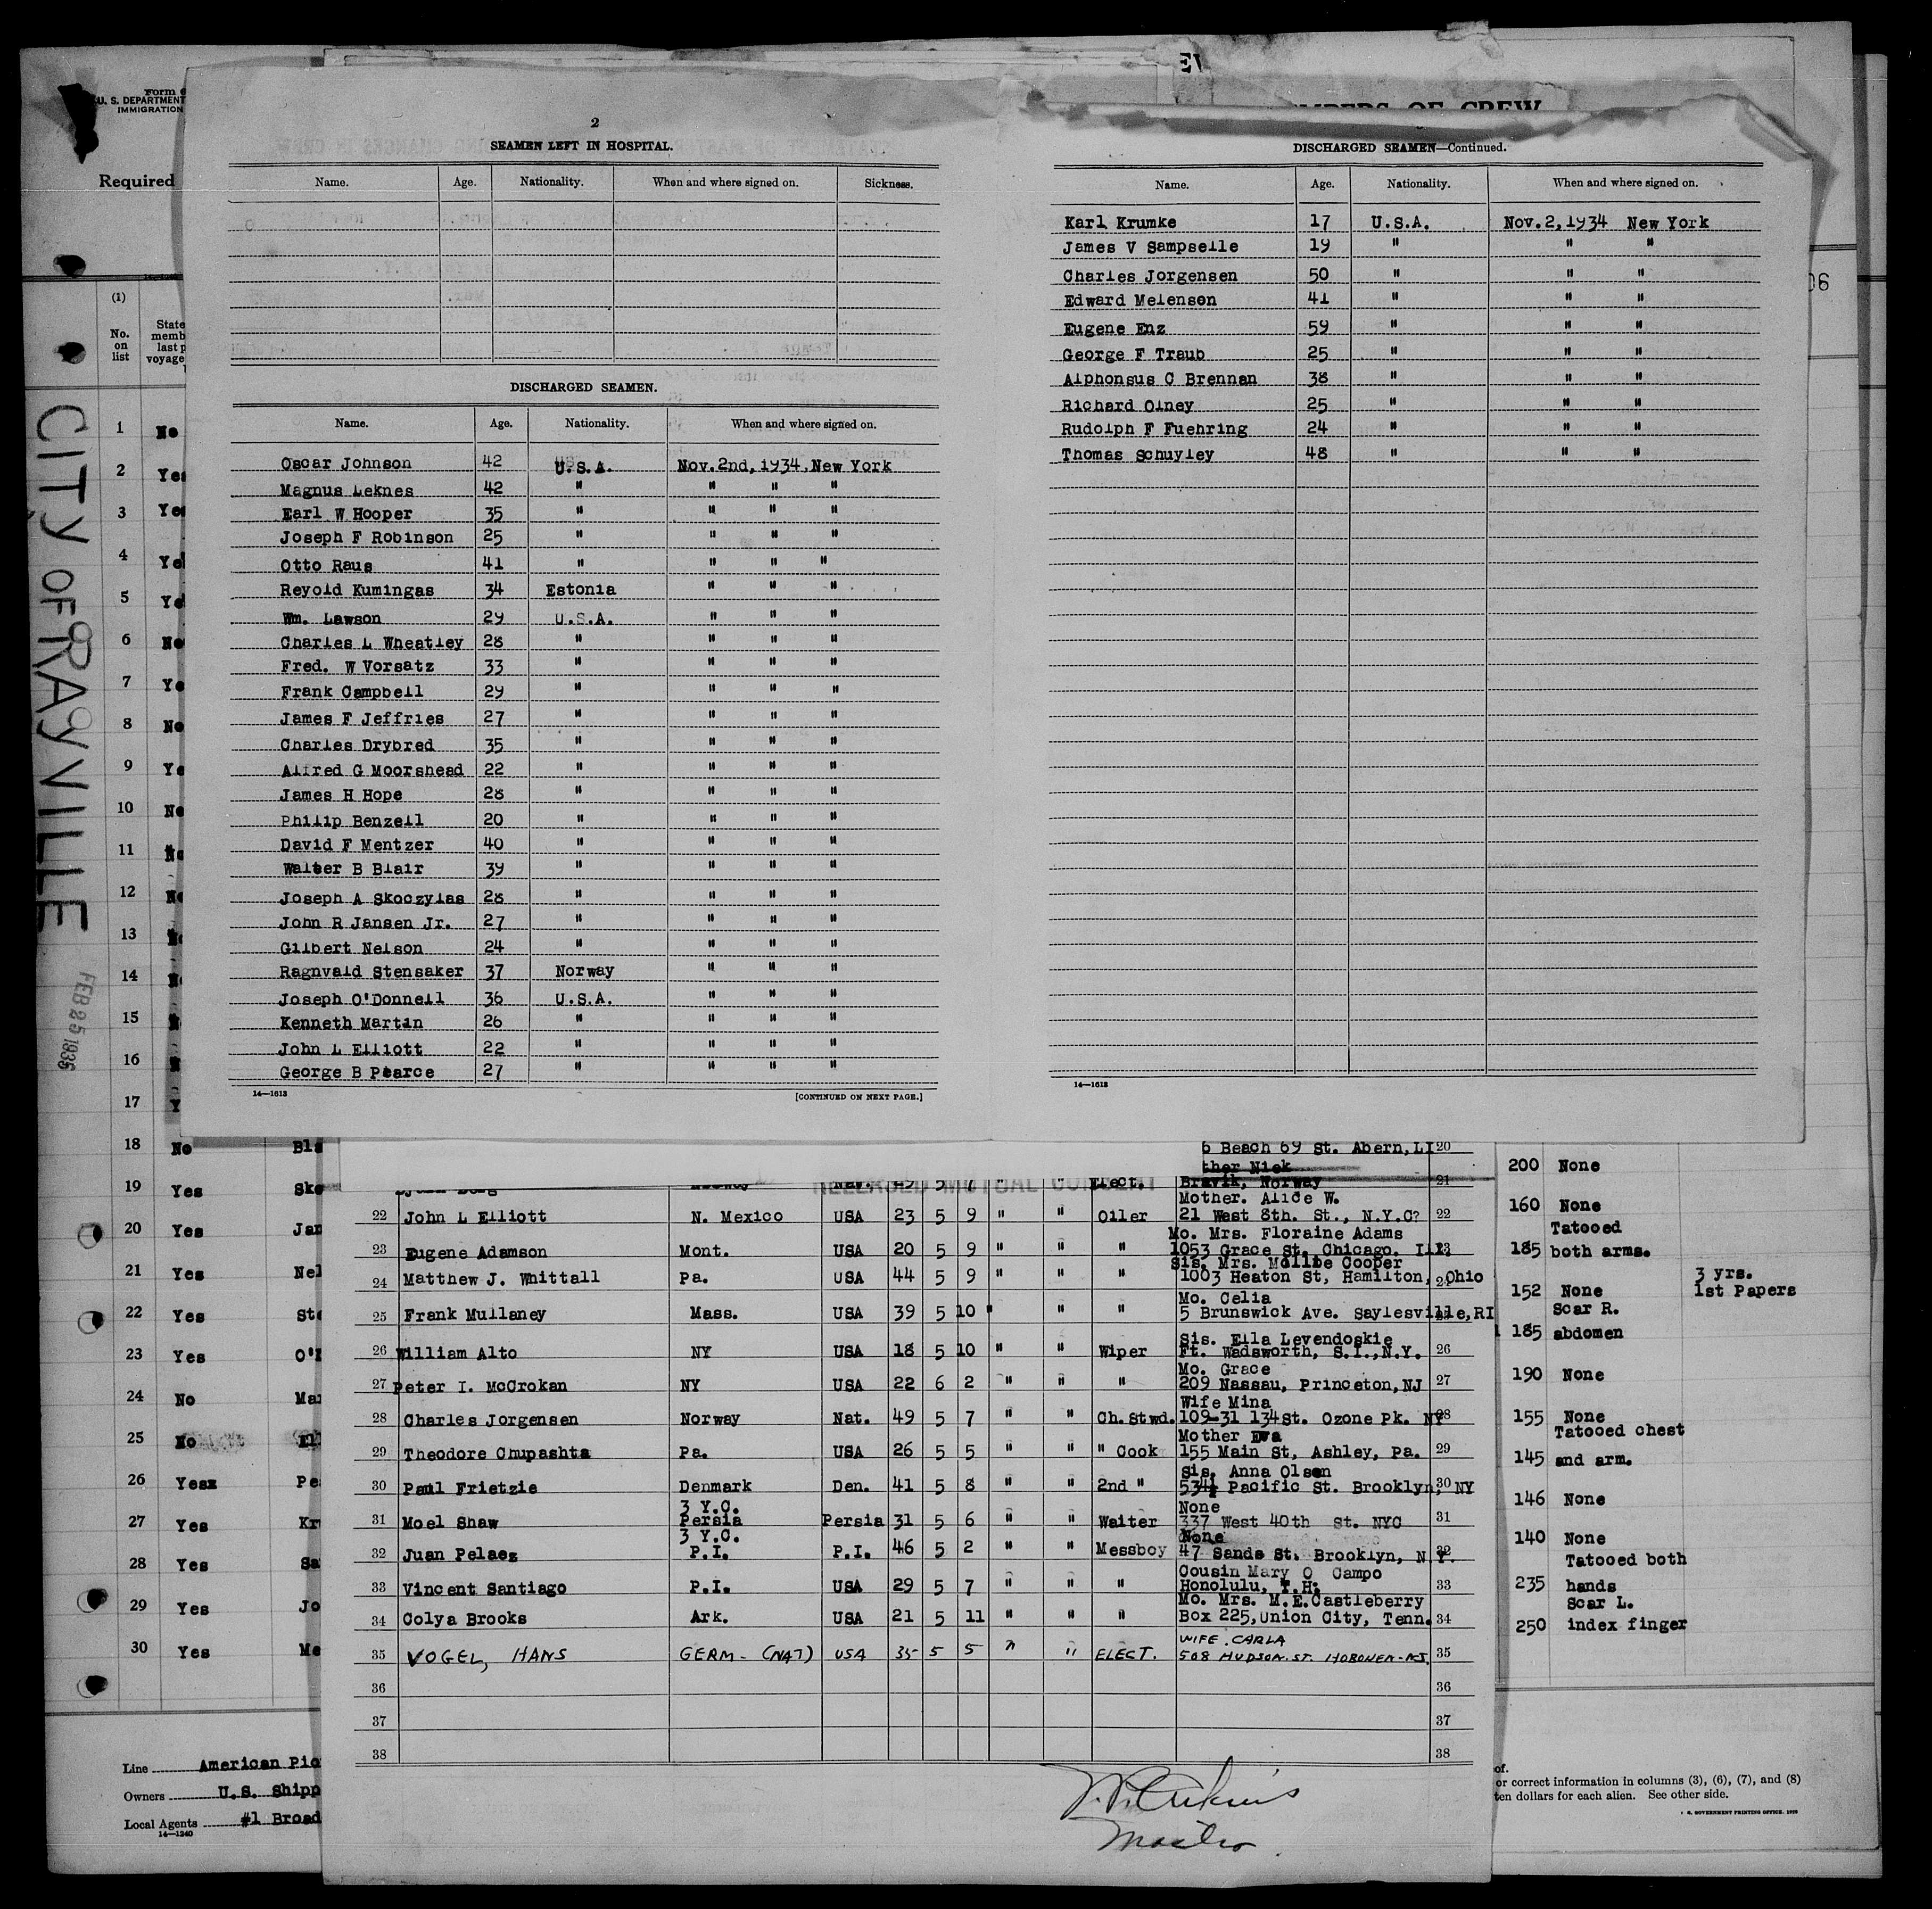 Form
U. S. DEPARTMENT
IMMIGRATION
Required
(1)
No. on list
State
memb
last p
voyage
CITY OF RAYVILLE
FEB 25 1935
1 No
2 Yes
3 Yes
4 Ye
5 Ye
6 No
7 Ye
8 No
9 Ye
10 No
11 No
12 No
13
14
15
16
17 Y
18 No Bla
19 Yes Sko
20 Yes Jan
21 Yes Nel
22 Yes Ste
23 Yes O'
24 No Mar
25 No Ell
26 Yesx Pe
27 Yes Kr
28 Yes Sa
29 Yes Jo
30 Yes Me
Line American Pio
Owners U.S. Shipp
Local Agents #1 Broad
14—1240
2
SEAMEN LEFT IN HOSPITAL.
Name. Age. Nationality. When and where signed on. Sickness.
DISCHARGED SEAMEN.
Name. Age. Nationality. When and where signed on.
Oscar Johnson 42 U.S.A. Nov. 2nd, 1934. New York
Magnus Leknes 42 " " " "
Earl W Hooper 35 " " " "
Joseph F Robinson 25 " " " "
Otto Raus 41 " " " "
Reyold Kumingas 34 Estonia " " "
Wm. Lawson 29 U.S.A. " " "
Charles L Wheatley 28 " " " "
Fred. W Vorsatz 33 " " " "
Frank Campbell 29 " " " "
James F Jeffries 27 " " " "
Charles Drybred 35 " " " "
Alfred G Moorshead 22 " " " "
James H Hope 28 " " " "
Philip Benzell 20 " " " "
David F Mentzer 40 " " " "
Walter B Blair 39 " " " "
Joseph A Skoczylas 28 " " " "
John R Jansen Jr. 27 " " " "
Gilbert Nelson 24 " " " "
Ragnvald Stensaker 37 Norway " " "
Joseph O'Donnell 36 U.S.A. " " "
Kenneth Martin 26 " " " "
John L Elliott 22 " " " "
George B Pearce 27 " " " "
14—1613 [CONTINUED ON NEXT PAGE.]
MBERS OF CREW
DISCHARGED SEAMEN—Continued.
Name. Age. Nationality. When and where signed on.
Karl Krumke 17 U.S.A. Nov. 2, 1934 New York
James V Sampselle 19 " " "
Charles Jorgensen 50 " " "
Edward Melenson 41 " " "
Eugene Enz 59 " " "
George F Traub 25 " " "
Alphonsus C Brennan 38 " " "
Richard Olney 25 " " "
Rudolph F Fuehring 24 " " "
Thomas Schuyley 48 " " "
14—1613
06
6 Beach 69 St. Abern, LI 20
ther Nick
RELEASED MUTUAL CONSENT
" Elect. Bravik, Norway 21
Mother. Alice W.
22 John L Elliott N. Mexico USA 23 5 9 " " Oiler 21 West 8th. St., N.Y.C? 22
Mo. Mrs. Floraine Adams
23 Eugene Adamson Mont. USA 20 5 9 " " " 1053 Grace St. Chicago. Ill. 23
Sis. Mrs. Mollie Cooper
24 Matthew J. Whittall Pa. USA 44 5 9 " " " 1003 Heaton St, Hamilton, Ohio
Mo. Celia
25 Frank Mullaney Mass. USA 39 5 10 " " " 5 Brunswick Ave. Saylesville, RI
Sis. Ella Levendoskie
26 William Alto NY USA 18 5 10 " " Wiper Ft. Wadsworth, S.I., N.Y. 26
Mo. Grace
27 Peter I. McCrokan NY USA 22 6 2 " " " 209 Nassau, Princeton, NJ 27
Wife Mina
28 Charles Jorgensen Norway Nat. 49 5 7 " " Ch. Stwd. 109-31 134 St. Ozone Pk. NY 28
Mother Eva
29 Theodore Chupashta Pa. USA 26 5 5 " " " Cook 155 Main St, Ashley, Pa. 29
Sis. Anna Olsen
30 Paul Frietzie Denmark Den. 41 5 8 " " 2nd " 534½ Pacific St. Brooklyn, NY 30
3 Y.C. None
31 Moel Shaw Persia Persia 31 5 6 " " Waiter 337 West 40th St. NYC 31
3 Y.C. None
32 Juan Pelaez P.I. P.I. 46 5 2 " " Messboy 47 Sands St. Brooklyn, N.Y. 32
Cousin Mary O Campo
33 Vincent Santiago P.I. USA 29 5 7 " " " Honolulu, T.H. 33
Mo. Mrs. M.E.Castleberry
34 Colya Brooks Ark. USA 21 5 11 " " " Box 225, Union City, Tenn. 34
WIFE. CARLA
35 VOGEL, HANS GERM- (NAT) USA 35 5 5 " " ELECT. 508 HUDSON. ST. HOBOKEN-NJ. 35
36 36
37 37
38 38
Master
200 None
160 None
Tatooed
185 both arms.
152 None 3 yrs. 1st Papers
Scar R.
185 abdomen
190 None
155 None
Tatooed chest
145 and arm.
146 None
140 None
Tatooed both
235 hands
Scar L.
250 index finger
of.
or correct information in columns (3), (6), (7), and (8)
ten dollars for each alien. See other side.
GOVERNMENT PRINTING OFFICE